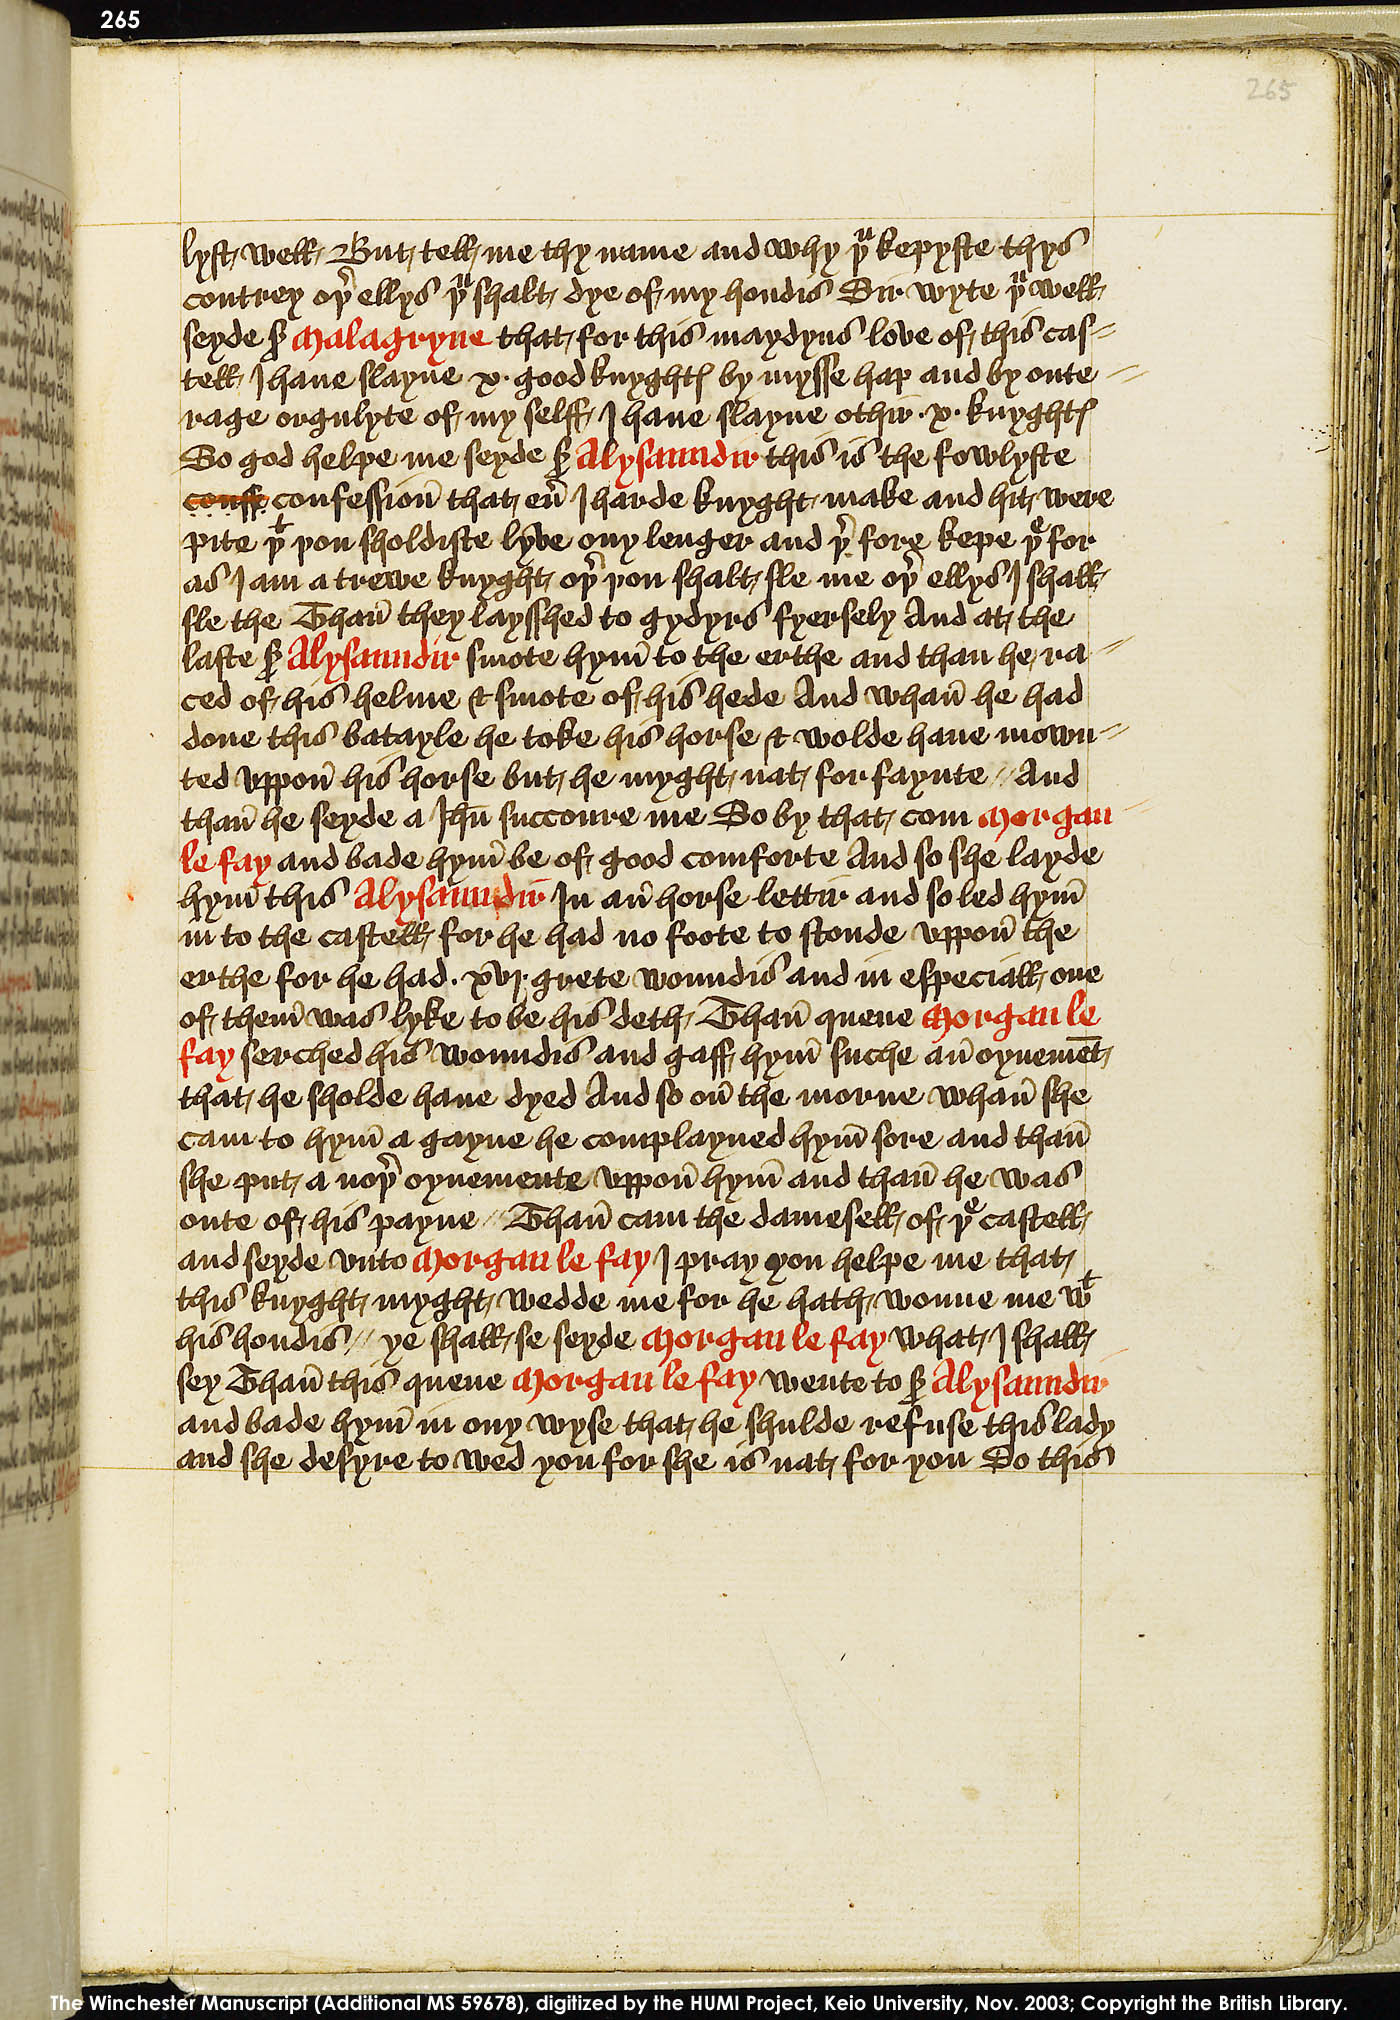 265
265
lyst well But tell me thy name and why þͧ kepyste thys
contrey oþ̉ ellys þͧ shalt dye of my hondis Sir wyte þͧ well
seyde Sͬ Malagryne that for this maydyns love of this cas-
tell I haue slayne .x. good knyghtꝭ by mysse hap and by oute //
rage orgulyte of my selff I haue slayne othir .x. knyghtꝭ
So god helpe me seyde Sͬ Alysaundir this is the fowlyste
conff confessioun̄ that eū I harde knyght make and hit were
pite þͭ you sholdiste lyve ony lenger and þ̉ fore kepe þͤ for
as I am a trewe knyght oþ̉ you shalt sle me oþ̉ ellys I shall
sle the Than̄ they laysshed to gydyrs fyersely And at the
laste Sͬ Alysaundir smote hym̄ to the erthe and than he ra //
ced of his helme & smote of his hede And whan̄ he had
done this batayle he toke his horse & wolde haue mown //
ted vppon̄ his horse but he myght nat for faynte // And
than̄ he seyde a Ihū succoure me So by that com Morgan //
le fay and bade hym̄ be of good comforte And so she layde
hym̄ this Alysaundir In an̄ horse lettir and so led hym̄
in to the castell for he had no foote to stonde vppon̄ the
erthe for he had .xvj. grete woundis and in especiall one
of them̄ was lyke to be his deth Than̄ quene Morgan le
fay serched his woundis and gaff hym̄ suche an̄ oynemēt
that he sholde haue dyed And so on̄ the morne whan̄ she
cam to hym̄ a gayne he complayned hym̄ sore and than̄
she put a noþ̉ oynemente vppon̄ hym̄ and than̄ he was
oute of his payne // Than̄ cam the damesell of þͤ castell
and seyde vnto Morgan le fay I pray you helpe me that
this knyght myght wedde me for he hath wonne me wͭ
his hondis // ye shall se seyde Morgan le fay what I shall
sey Than̄ this quene Morgan le fay wente to Sͬ Alysaundir
and bade hym̄ in ony wyse that he shulde refuse this lady
and she desyre to wed you for she is nat for you So this
The Winchester Manuscript (Additional MS 59678), digitized by the HUMI Project, Keio University, Nov. 2003; Copyright the British Library.